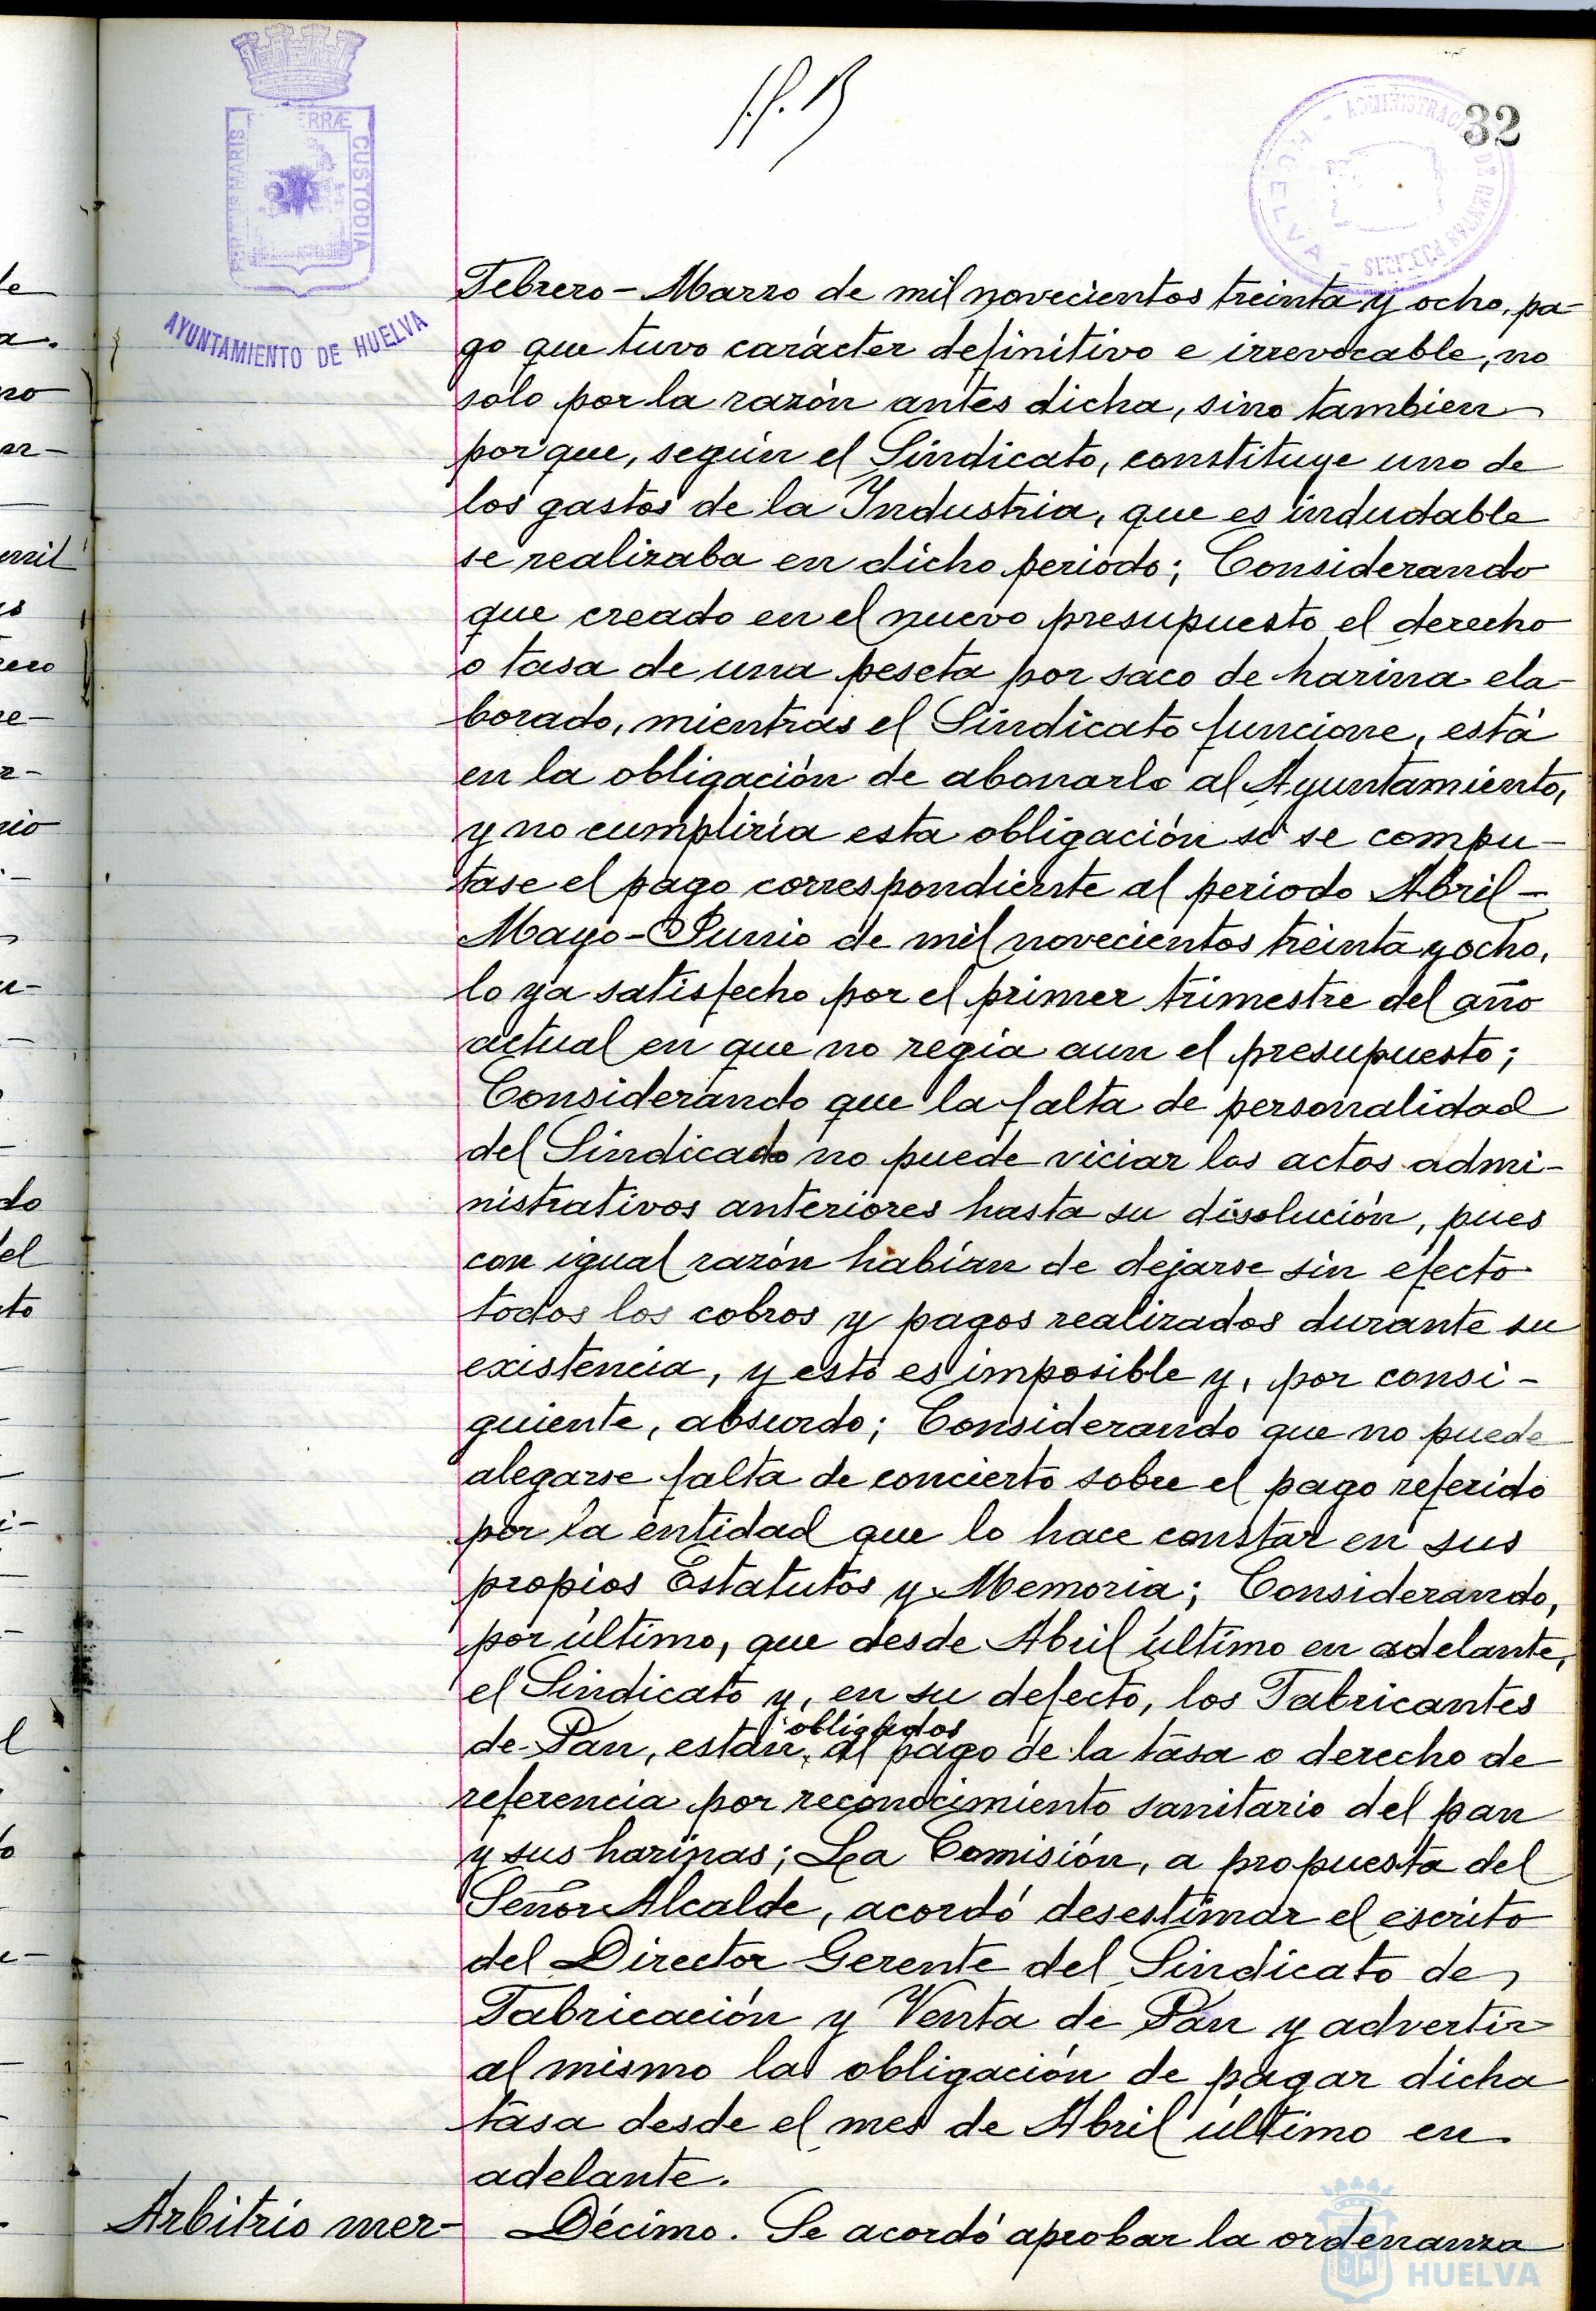 32
CUSTODIA
AYUNTAMIENTO DE HUELVA
HUELVA
Febrero - Marzo de mil novecientos treinta y ocho, pa-
go que tuvo carácter definitivo e irrevocable, no
solo por la razón antes dicha, sino tambien
porque, según el Sindicato, constituye uno de
los gastos de la Industria, que es indudable
se realizaba en dicho periodo; Considerando
que creado en el nuevo presupuesto el derecho
o tasa de una peseta por saco de harina ela-
borado, mientras el Sindicato funcione, está
en la obligación de abonarlo al Ayuntamiento,
y no cumpliría esta obligación si se compu-
tase el pago correspondiente al periodo Abril -
Mayo - Junio de mil novecientos treinta y ocho,
lo ya satisfecho por el primer trimestre del año
actual en que no regía aun el presupuesto;
Considerando que la falta de personalidad
del Sindicado no puede viciar los actos admi-
nistrativos anteriores hasta su disolución, pues
con igual razón habían de dejarse sin efecto
todos los cobros y pagos realizados durante su
existencia, y esto es imposible y, por consi-
guiente, absurdo; Considerando que no puede
alegarse falta de concierto sobre el pago referido
por la entidad que lo hace constar en sus
propios Estatutos y Memoria; Considerando,
por último, que desde Abril último en adelante,
el Sindicato y, en su defecto, los Fabricantes
de Pan, están obligados al pago de la tasa o derecho de
referencia por reconocimiento sanitario del pan
y sus harinas; La Comisión, a propuesta del
Señor Alcalde, acordó desestimar el escrito
del Director Gerente del Sindicato de
Fabricación y Venta de Pan y advertir
al mismo la obligación de pagar dicha
tasa desde el mes de Abril último en
adelante.
Arbitrio mer- Décimo. Se acordó aprobar la ordenanza
HUELVA